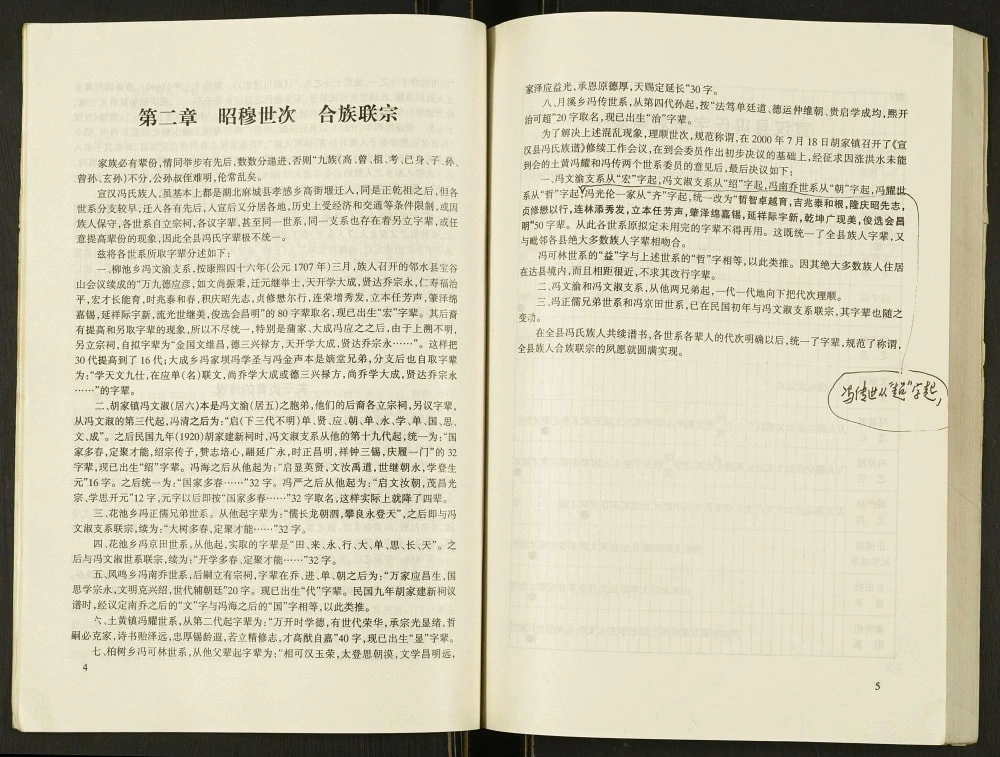 第二章　昭穆世次　合族联宗
家族必有辈份,情同举步有先后,数数分递进,否则“九族(高、曾、祖、考、己身、子、孙、
曾孙、玄孙)不分,公孙叔侄难明,伦常乱矣。
宣汉冯氏族人,虽基本上都是湖北麻城县孝感乡高街堰迁人,同是正乾祖之后,但各
世系分支较早,迁人各有先后,入宣后又分居各地,历史上受经济和交通等条件限制,或因
族人保守,各世系自立宗祠,各议字辈,甚至同一世系,同一支系也存在着另立字辈,或任
意提高辈份的现象,因此全县冯氏字辈极不统一。
兹将各世系所取字辈分述如下:
一、柳池乡冯文渝支系,按康熙四十六年(公元1707年)三月,族人召开的邻水县宝谷
山会议续成的“万九德应彦,如文尚振秉,迁元继举士,天开学大成,贤达乔宗永,仁寿福治
平,宏才长能育,时兆泰和春,积庆昭先志,贞修懋尔行,连荣增秀发,立本任芳声,肇泽绵
嘉锡,延祥际宇新,流光世继美,俊选会昌明”的80字辈取名,现已出生“宏”字辈。其后裔
有提高和另取字辈的现象,所以不尽统一,特别是蒲家、大成冯应之之后,由于上溯不明,
另立宗祠,自拟字辈为“金国文维昌,德三兴禄方,天开学大成,贤达乔宗永……”。这样把
30代提高到了16代;大成乡冯家坝冯学圣与冯金声本是嫡堂兄弟,分支后也自取字辈
为:“学天文九仕,在应单(名)联文,尚乔学大成或德三兴禄方,尚乔学大成,贤达乔宗永
……”的字辈。
二、胡家镇冯文淑(居六)本是冯文渝(居五)之胞弟,他们的后裔各立宗祠,另议字辈,
从冯文淑的第三代起,冯清之后为:“启(下三代不明)单、贤、应、朝、单、永、学、单、国、思、
文、成”。之后民国九年(1920)胡家建新祠时,冯文淑支系从他的第十九代起,统一为:“国
家多春,定聚才能,绍宗传子,赞志培心,翮延广永,时正昌明,祥钟三锡,庆履一门”的32
字辈,现已出生“绍”字辈。冯海之后从他起为:“启显英贤,文汝禹道,世继朝永,学登生
元”16字。之后统一为:“国家多春……”32字。冯严之后从他起为:“启文汝朝,茂昌光
宗、学思开元”12字,元字以后即按“国家多春……”32字取名,这样实际上就降了四辈。
三、花池乡冯正儒兄弟世系。从他起字辈为:“儒长龙朝泗,攀良永登天”,之后即与冯
文淑支系联宗,续为:“大树多春,定聚才能……”32字。
四、花池乡冯京田世系,从他起,实取的字辈是“田、来、永、行、大、单、思、长、天”。之
后与冯文淑世系联宗,续为:“开学多春、定聚才能……”32字。
五、凤鸣乡冯南乔世系,后嗣立有宗祠,字辈在乔、进、单、朝之后为:“万家应昌生,国
思学宗永,文明克兴绍,世代辅朝廷”20字。现已出生“代”字辈。民国九年胡家建新祠议
谱时,经议定南乔之后的“文”字与冯海之后的“国”字相等,以此类推。
六、土黄镇冯耀世系,从第二代起字辈为:“万开时学德,有世代荣华,承宗光显绪,哲
嗣必克家,诗书贻泽远,忠厚锡龄遐,若立精修志,才高猷自嘉”40字,现已出生“显”字辈。
七、柏树乡冯可林世系,从他父辈起字辈为:“相可汉玉荣,太登思朝漠,文学昌明远,
4
家泽应益光,承恩原德厚,天赐定延长”30字。
八、月溪乡冯传世系,从第四代孙起,按“法笃单廷道、德运仲维朝、贵启学成均,熙开
治可超”20字取名,现已出生“治”字辈。
为了解决上述混乱现象,理顺世次,规范称谓,在2000年7月18日胡家镇召开了《宣
汉县冯氏族谱》修续工作会议,在到会委员作出初步决议的基础上,经征求因涨洪水未能
到会的土黄冯耀和冯传两个世系委员的意见后,最后决议如下:
一、冯文渝支系从“宏”字起,冯文淑支系从“绍”字起,冯南乔世系从“朝”字起,冯耀世
系从“哲”字起,冯光伦一家从“齐”字起,统一改为“哲智卓越育,吉兆泰和根,隆庆昭先志,
贞修懋以行,连林添秀发,立本任芳声,肇泽绵嘉锡,延祥际宇新,乾坤广现美,俊选会昌
明”50字辈。从此各世系原拟定未用完的字辈不得再用。这既统一了全县族人字辈,又
与毗邻各县绝大多数族人字辈相吻合。
冯可林世系的“益”字与上述世系的“哲”字相等,以此类推。因其绝大多数族人住居
在达县境内,而且相距很近,不求其改行字辈。
二、冯文渝和冯文淑支系,从他两兄弟起,一代一代地向下把代次理顺。
三、冯正儒兄弟世系和冯京田世系,已在民国初年与冯文淑支系联宗,其字辈也随之
变动。
在全县冯氏族人共续谱书,各世系各辈人的代次明确以后,统一了字辈,规范了称谓,
全县族人合族联宗的夙愿就圆满实现。
冯传世从“超”字起,
5